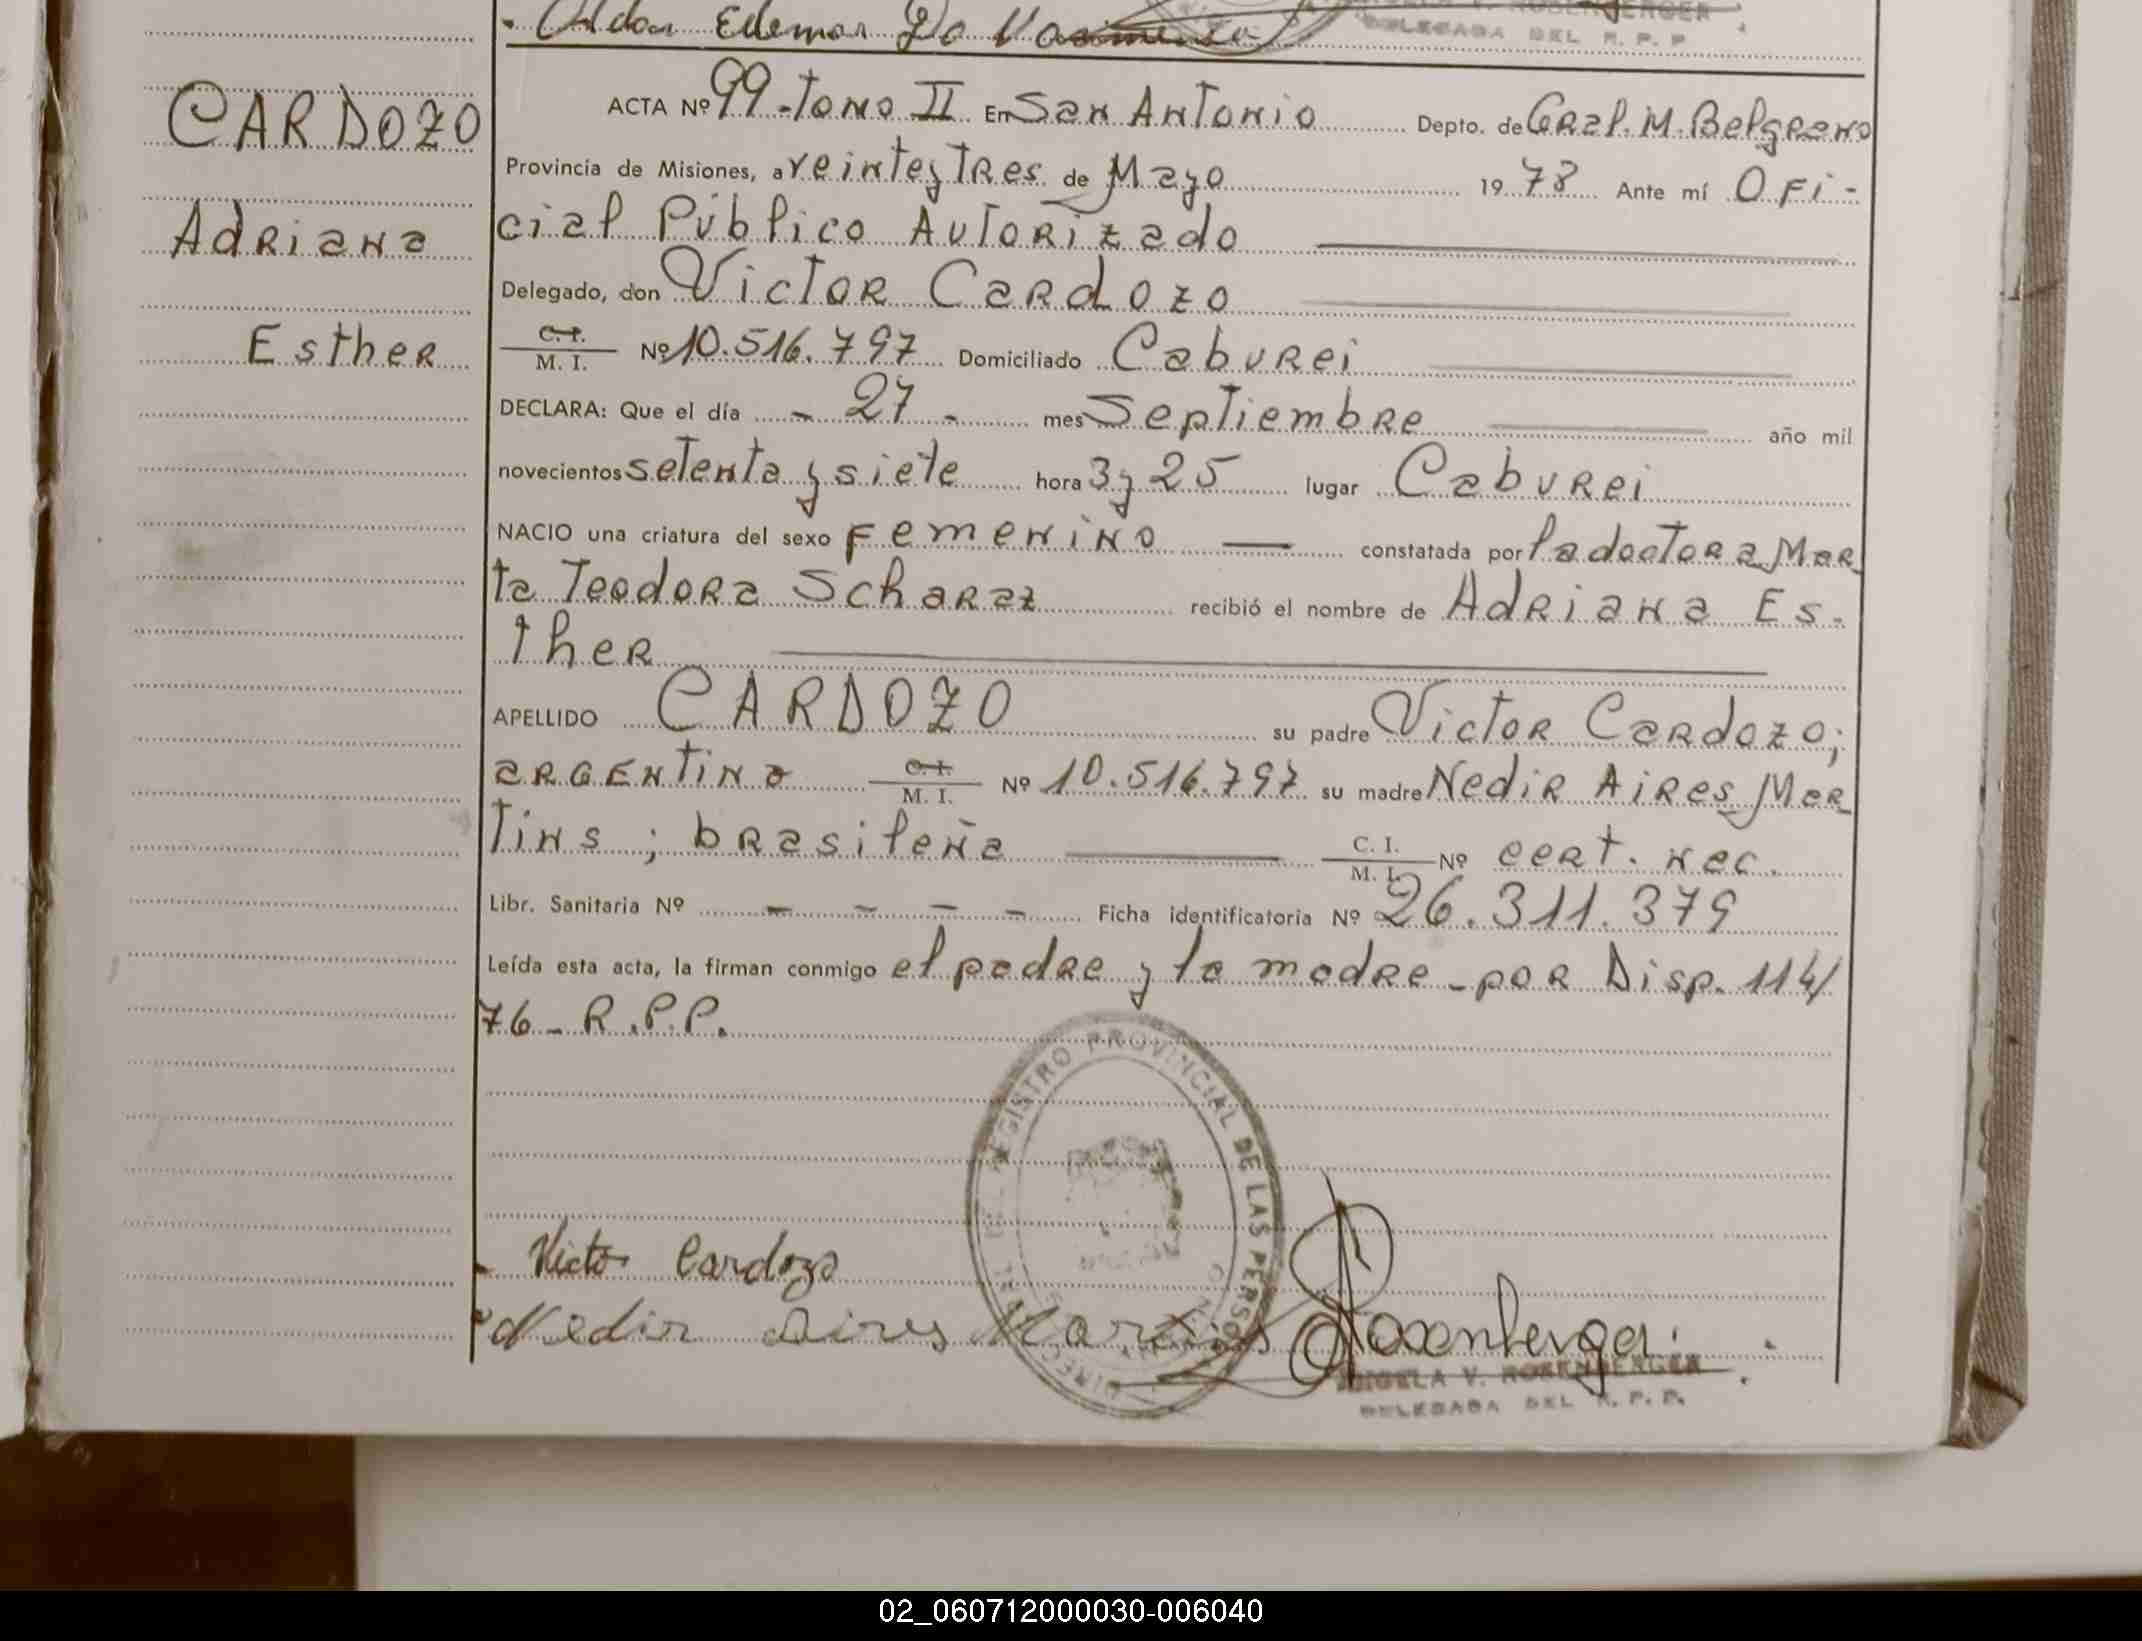 Aldor Edemar Do Nascimento
DELEGADA DEL R. P. P.
CARDOZO
Adriana
Esther
ACTA Nº 99 - tomo II En San Antonio Depto. de Gral. M. Belgrano
Provincia de Misiones, a veintey tres de Mayo 19 78 Ante mí Ofi-
cial Público Autorizado
Delegado, don Victor Cardozo
C. I. / M. I. Nº 10.516.797 Domiciliado Caburei
DECLARA: Que el día - 27 - mes Septiembre año mil
novecientos setenta y siete hora 3 y 25 lugar Caburei
NACIO una criatura del sexo Femenino constatada por la doctora Mar
ta Teodora Scharaz recibió el nombre de Adriana Es-
ther
APELLIDO CARDOZO su padre Victor Cardozo;
argentino C. I. / M. I. Nº 10.516.797 su madre Nedir Aires Mar
tins; brasileña C. I. / M. I. Nº cert. nac.
Libr. Sanitaria Nº - - - - Ficha identificatoria Nº 26.311.379
Leída esta acta, la firman conmigo el padre y la madre - por Disp. 114/
76 - R.P.P.
REGISTRO PROVINCIAL DE LAS PERSONAS
Victor Cardozo
Nedir Aires Martins
Rosenberger
ANGELA V. ROSENBERGER
DELEGADA DEL R. P. P.
02_060712000030-006040